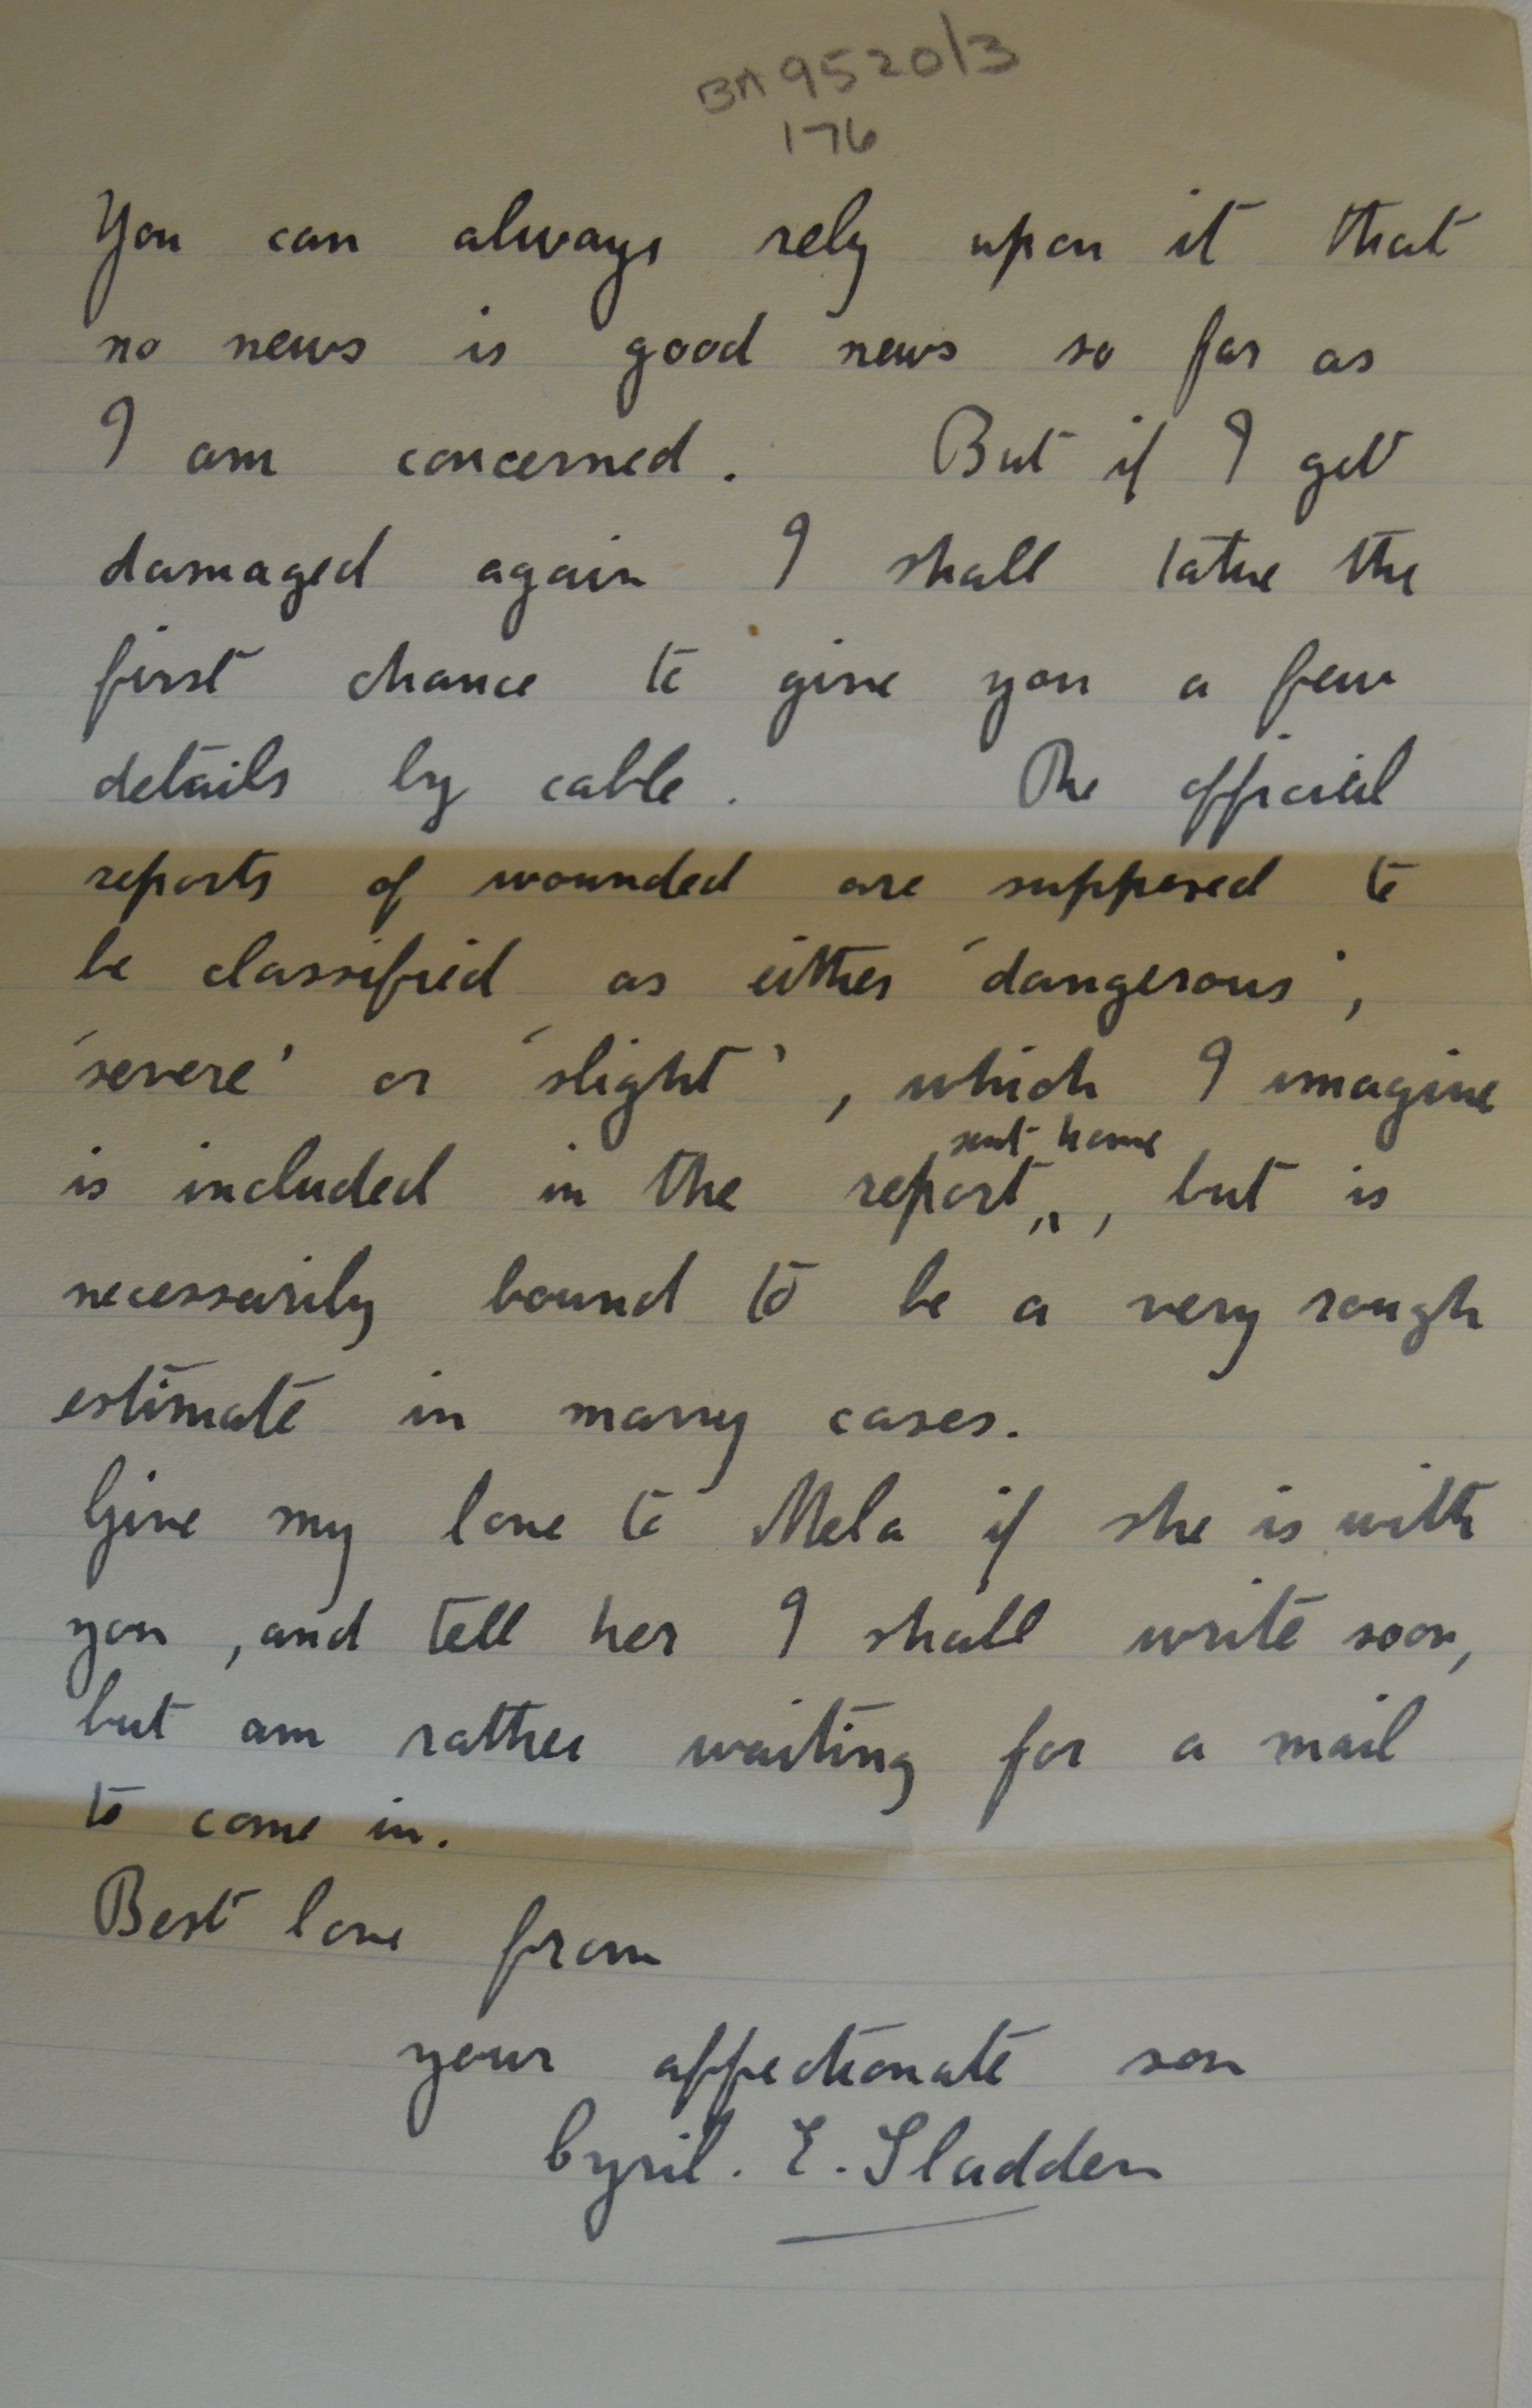 BA 9520/3
176
You can always rely upon it that
no news is good news so far as
I am concerned. But if I get
damaged again I shall take the
first chance to give you a few
details by cable. The official
reports of wounded are supposed to
be classified as either 'dangerous',
'severe' or 'slight', which I imagine
sent home
is included in the report, but is
necessarily bound to be a very rough
estimate in many cases.
Give my love to Mela if she is with
you, and tell her I shall write soon,
but am rather waiting for a mail
to come in.
Best love from
your affectionate son
Cyril. E. Sladden